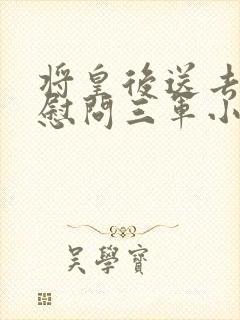 将皇後送去
慰問三軍小
吳學寶